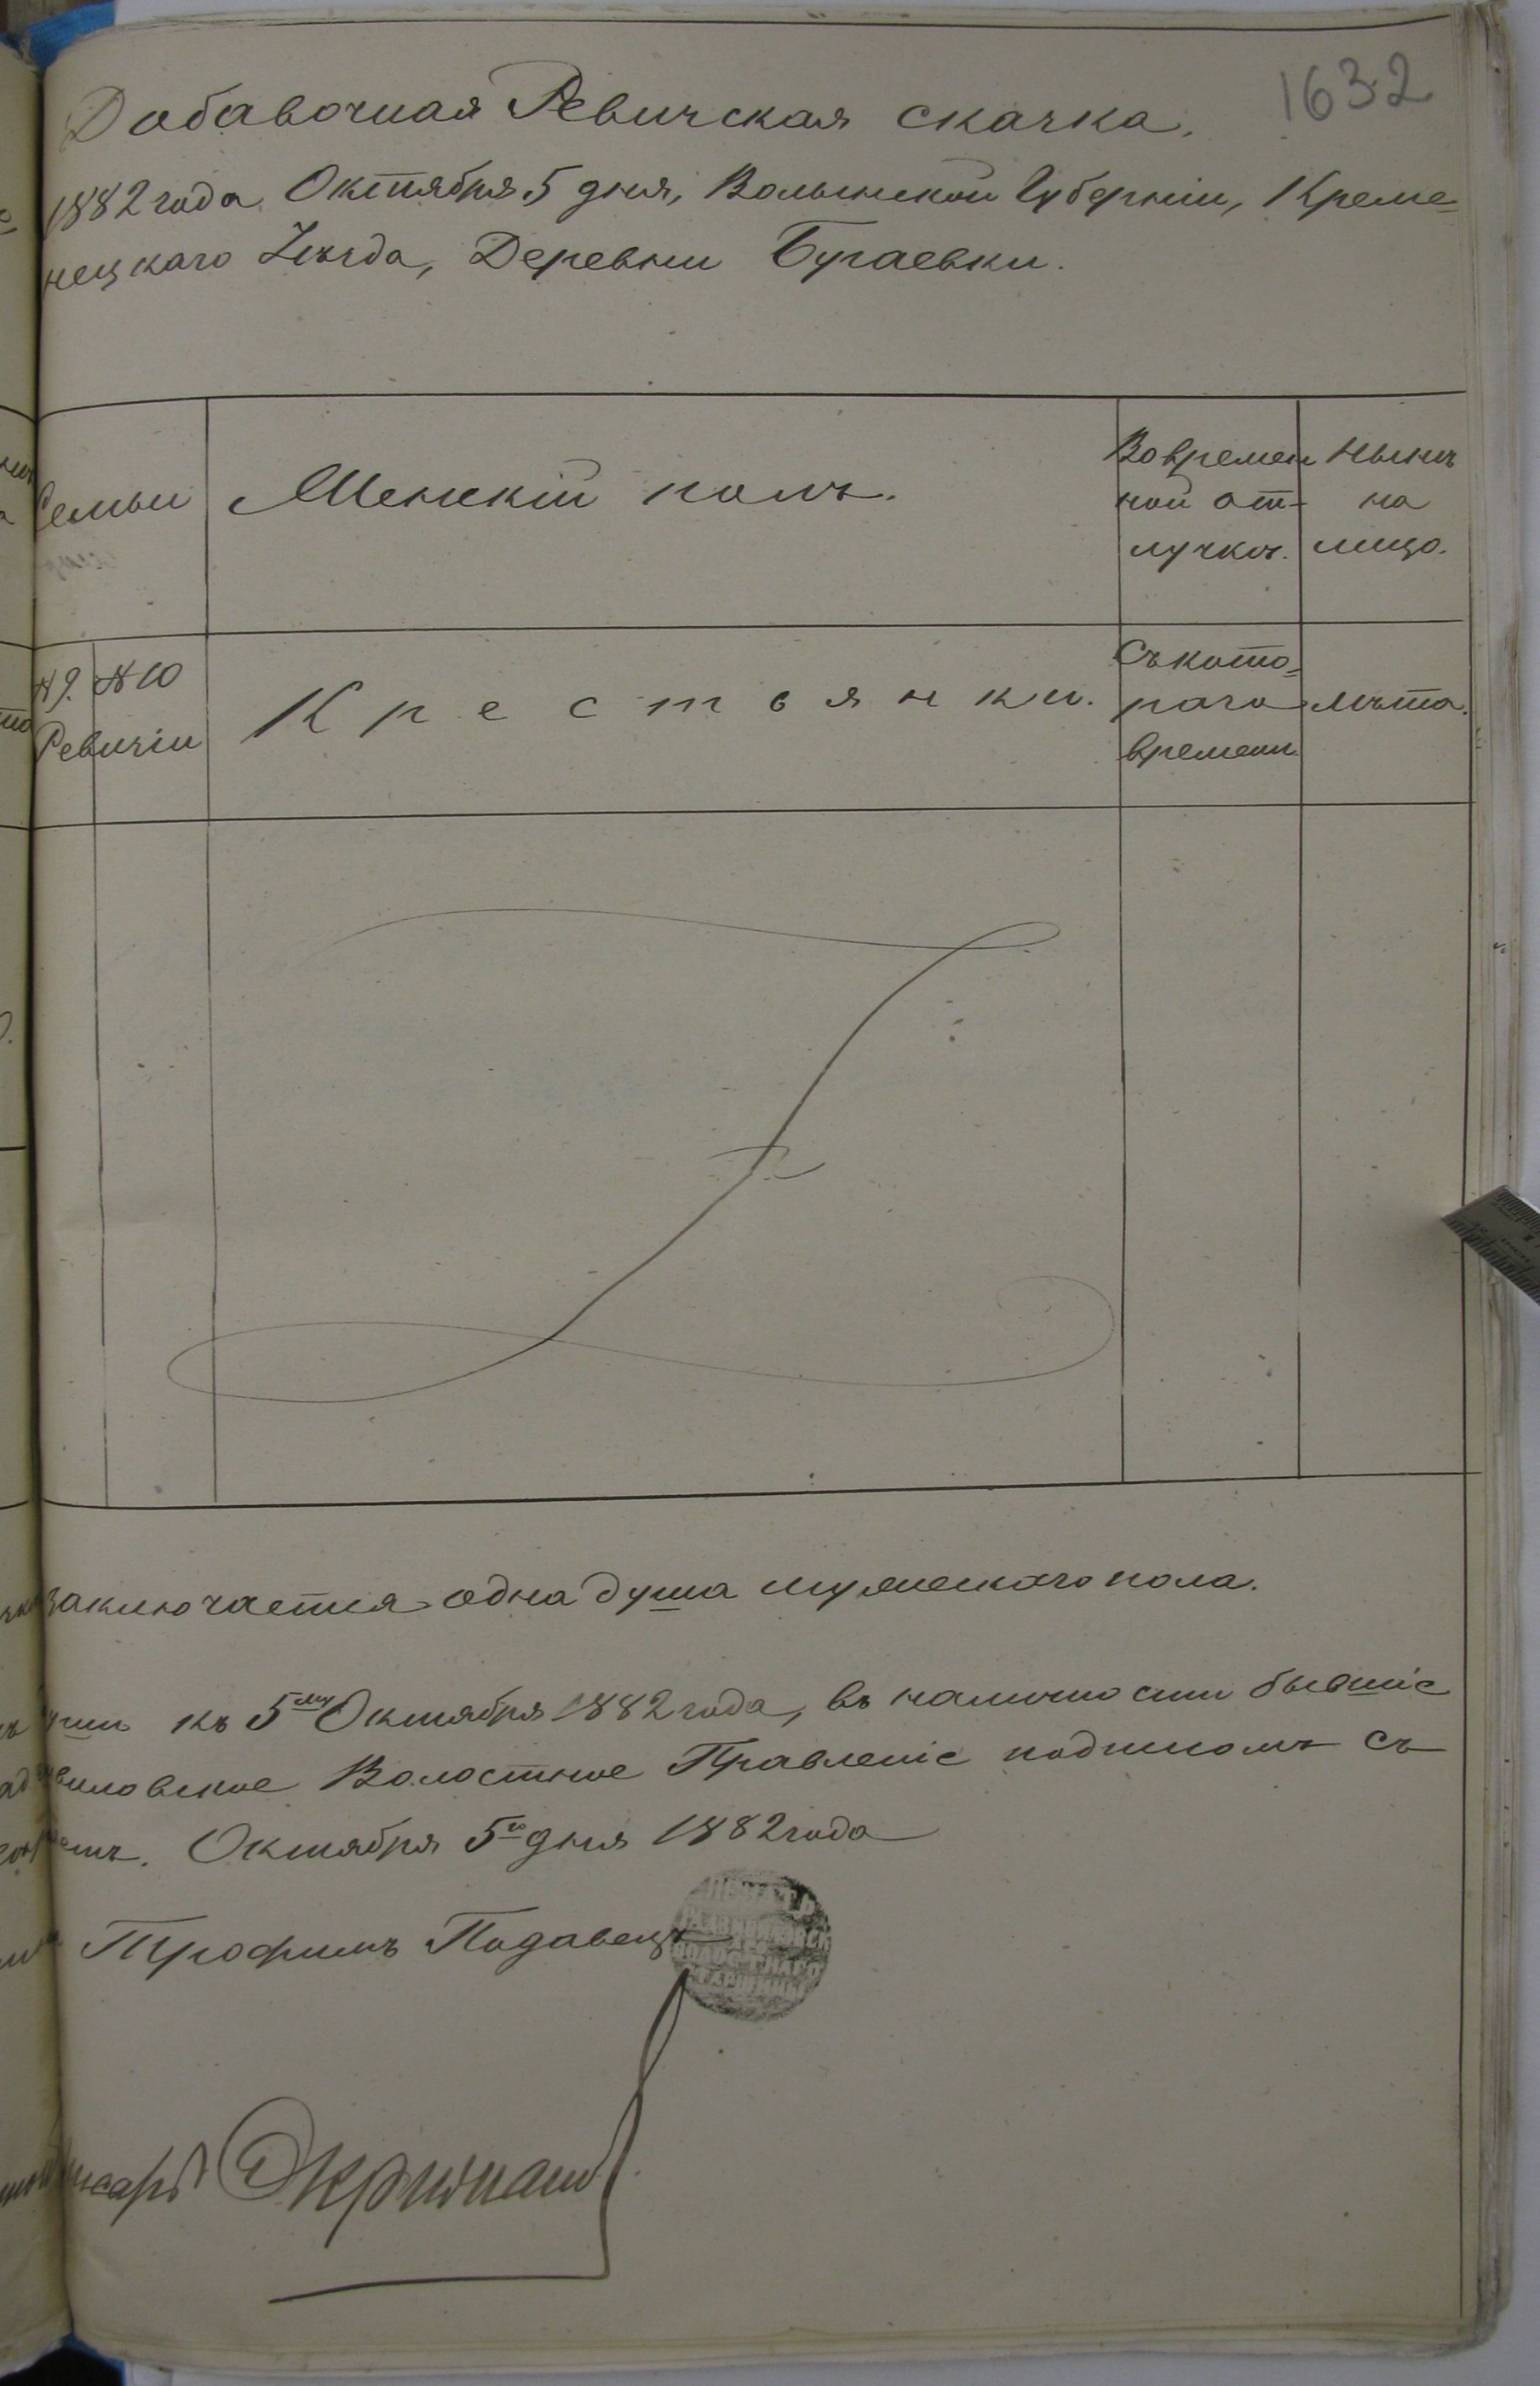 1632
Добавочная Ревизская сказка.
1882 года Октября 5 дня, Волынской Губерніи, Креме=
нецкаго Уѣзда, Деревни Бугаевки.
Семьи
Женскій полъ.
Вовремен
ной от-
лучкѣ.
Нынѣ
на
лицо.
№9. №10
Ревизіи
Крестьянки.
Съкото=
раго
времени.
Лѣта.
заключается одна душа мужескаго пола.
къ 5му Октября 1882 года, въ наличности бывшіе
Волостное Правленіе подписомъ съ
Октября 5го дня 1882 года
Трофимъ Подавецъ
ПЕЧАТЬ
ВОЛОСТНАГО
СТАРШИНЫ